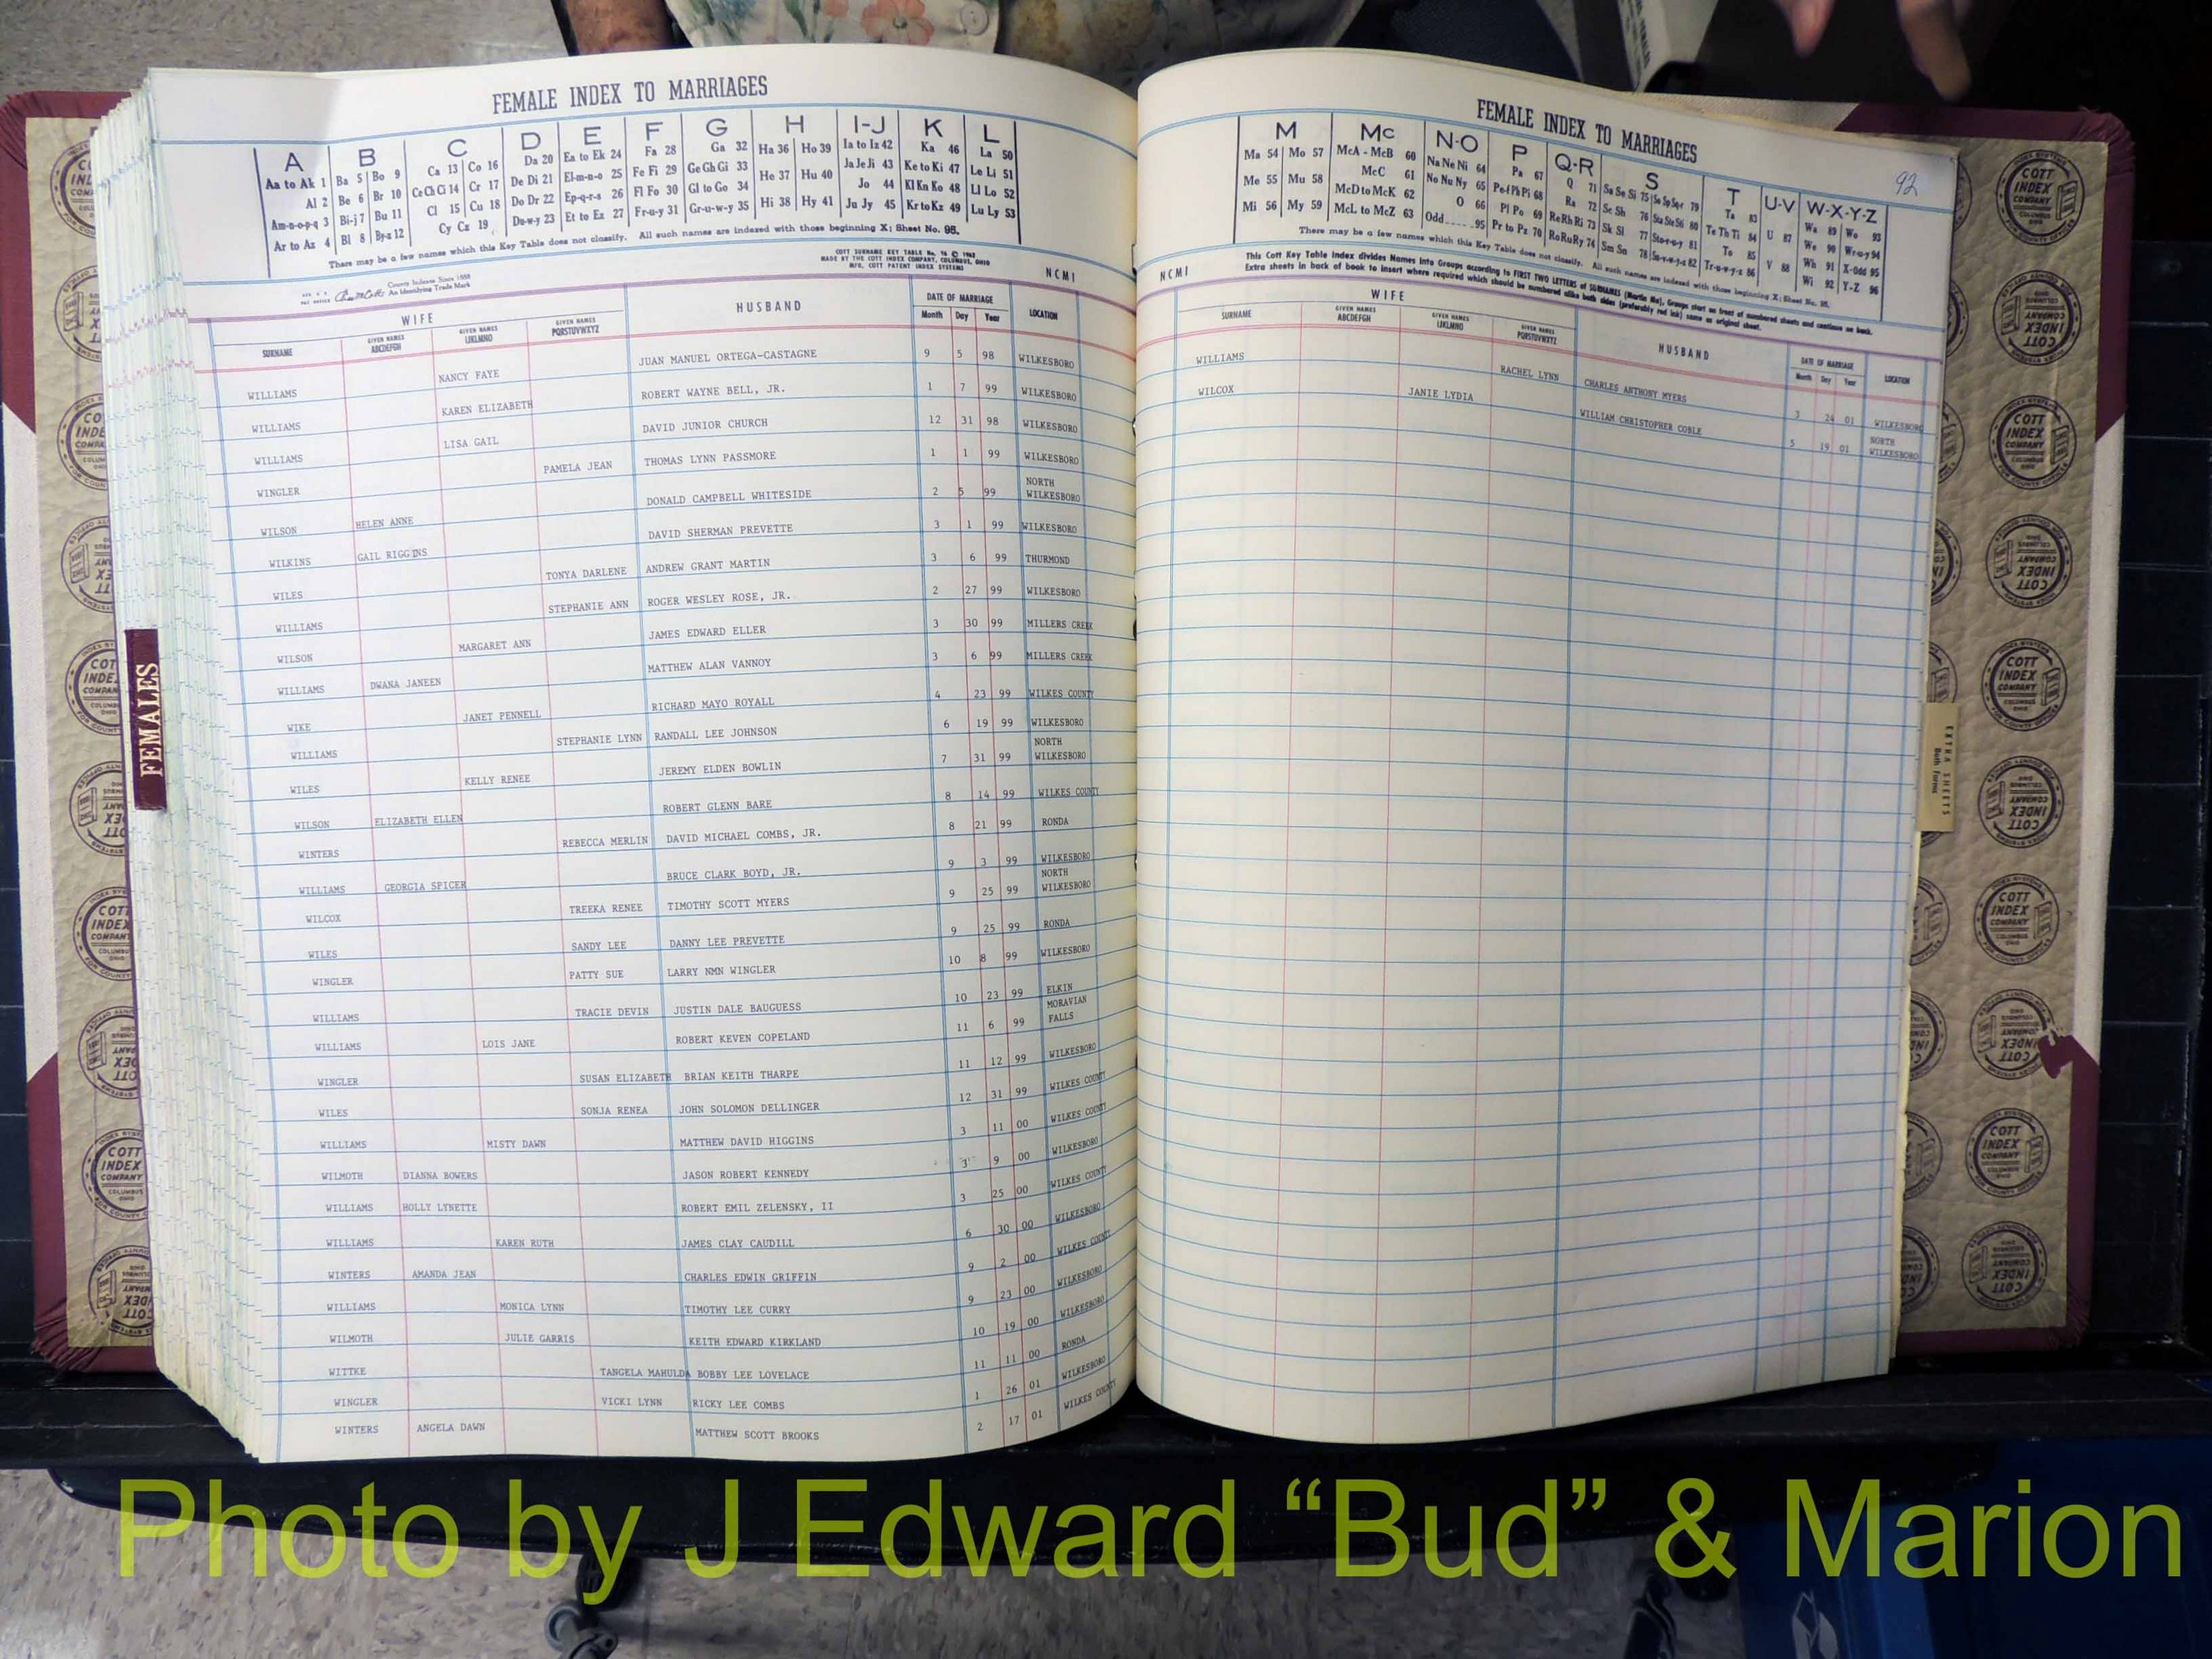 FEMALE INDEX TO MARRIAGES
A B C D E F G H I-J K L
Aa to Ak 1 Ba 5 Bo 9 Ca 13 Co 16 Da 20 Ea to Ek 24 Fa 28 Ga 32 Ha 36 Ho 39 Ia to Iz 42 Ka 46 La 50
Al 2 Be 6 Br 10 Ce Ch Ci 14 Cr 17 De Di 21 El-m-n-o 25 Fe Fi 29 Ge Gh Gi 33 He 37 Hu 40 Ja Je Ji 43 Ke to Ki 47 Le Li 51
Am-n-o-p-q 3 Bi-j 7 Bu 11 Cl 15 Cu 18 Do Dr 22 Ep-q-r-s 26 Fl Fo 30 Gl to Go 34 Hi 38 Hy 41 Jo 44 Kl Kn Ko 48 Ll Lo 52
Ar to Az 4 Bl 8 By-z 12 Cy Cz 19 Du-w-y 23 Et to Ez 27 Fr-u-y 31 Gr-u-w-y 35 Ju Jy 45 Kr to Kz 49 Lu Ly 53
There may be a few names which this Key Table does not classify. All such names are indexed with those beginning X; Sheet No. 95.
County Indexes Since 1888
An Identifying Trade Mark
MADE BY THE COTT INDEX COMPANY, COLUMBUS, OHIO
MFG. COTT PATENT INDEX SYSTEMS
NCMI
WIFE HUSBAND DATE OF MARRIAGE LOCATION
SURNAME GIVEN NAMES ABCDEFGH GIVEN NAMES IJKLMNO GIVEN NAMES PQRSTUVWXYZ Month Day Year
WILLIAMS NANCY FAYE JUAN MANUEL ORTEGA-CASTAGNE 9 5 98 WILKESBORO
WILLIAMS KAREN ELIZABETH ROBERT WAYNE BELL, JR. 1 7 99 WILKESBORO
WILLIAMS LISA GAIL DAVID JUNIOR CHURCH 12 31 98 WILKESBORO
WINGLER PAMELA JEAN THOMAS LYNN PASSMORE 1 1 99 WILKESBORO
WILSON HELEN ANNE DONALD CAMPBELL WHITESIDE 2 5 99 NORTH WILKESBORO
WILKINS GAIL RIGGINS DAVID SHERMAN PREVETTE 3 1 99 WILKESBORO
WILES TONYA DARLENE ANDREW GRANT MARTIN 3 6 99 THURMOND
WILLIAMS STEPHANIE ANN ROGER WESLEY ROSE, JR. 2 27 99 WILKESBORO
WILSON MARGARET ANN JAMES EDWARD ELLER 3 30 99 MILLERS CREEK
WILLIAMS DWANA JANEEN MATTHEW ALAN VANNOY 3 6 99 MILLERS CREEK
WIKE JANET PENNELL RICHARD MAYO ROYALL 4 23 99 WILKES COUNTY
WILLIAMS STEPHANIE LYNN RANDALL LEE JOHNSON 6 19 99 WILKESBORO
WILES KELLY RENEE JEREMY ELDEN BOWLIN 7 31 99 NORTH WILKESBORO
WILSON ELIZABETH ELLEN ROBERT GLENN BARE 8 14 99 WILKES COUNTY
WINTERS REBECCA MERLIN DAVID MICHAEL COMBS, JR. 8 21 99 RONDA
WILLIAMS GEORGIA SPICER BRUCE CLARK BOYD, JR. 9 3 99 WILKESBORO
WILCOX TREEKA RENEE TIMOTHY SCOTT MYERS 9 25 99 NORTH WILKESBORO
WILES SANDY LEE DANNY LEE PREVETTE 9 25 99 RONDA
WINGLER PATTY SUE LARRY NMN WINGLER 10 8 99 WILKESBORO
WILLIAMS TRACIE DEVIN JUSTIN DALE BAUGUESS 10 23 99 ELKIN
WILLIAMS LOIS JANE ROBERT KEVEN COPELAND 11 6 99 MORAVIAN FALLS
WINGLER SUSAN ELIZABETH BRIAN KEITH THARPE 11 12 99 WILKESBORO
WILES SONJA RENEA JOHN SOLOMON DELLINGER 12 31 99 WILKES COUNTY
WILLIAMS MISTY DAWN MATTHEW DAVID HIGGINS 3 11 00 WILKES COUNTY
WILMOTH DIANNA BOWERS JASON ROBERT KENNEDY 3 9 00 WILKESBORO
WILLIAMS HOLLY LYNETTE ROBERT EMIL ZELENSKY, II 3 25 00 WILKES COUNTY
WILLIAMS KAREN RUTH JAMES CLAY CAUDILL 6 30 00 WILKESBORO
WINTERS AMANDA JEAN CHARLES EDWIN GRIFFIN 9 2 00 WILKES COUNTY
WILLIAMS MONICA LYNN TIMOTHY LEE CURRY 9 23 00 WILKESBORO
WILMOTH JULIE GARRIS KEITH EDWARD KIRKLAND 10 19 00 WILKESBORO
WITTKE TANGELA MAHULDA BOBBY LEE LOVELACE 11 11 00 RONDA
WINGLER VICKI LYNN RICKY LEE COMBS 1 26 01 WILKESBORO
WINTERS ANGELA DAWN MATTHEW SCOTT BROOKS 2 17 01 WILKES COUNTY
FEMALES
FEMALE INDEX TO MARRIAGES
92
M Mc N-O P Q-R S T U-V W-X-Y-Z
Ma 54 Mo 57 McA - McB 60 Na Ne Ni 64 Pa 67 Q 71 Sa Se Si 75 Sa Sp Sq-r 79 Ta 83 U 87 Wa 89 Wo 93
Me 55 Mu 58 McC 61 No Nu Ny 65 Pe-f Ph Pi 68 Ra 72 Sc Sh 76 Sta Ste Sti 80 Te Th Ti 84 V 88 We 90 Wr-u-y 94
Mi 56 My 59 McD to McK 62 O 66 Pl Po 69 Re Rh Ri 73 Sk Sl 77 Sto-r-u-y 81 To 85 Wh 91 X-Odd 95
McL to McZ 63 Odd 95 Pr to Pz 70 Ro Ru Ry 74 Sm Sn 78 Su-v-w-y-z 82 Tr-u-w-y-z 86 Wi 92 Y-Z 96
There may be a few names which this Key Table does not classify. All such names are indexed with those beginning X; Sheet No. 95.
This Cott Key Table Index divides Names into Groups according to FIRST TWO LETTERS of SURNAMES (Martin Ma). Groups start on front of numbered sheets and continue on back.
Extra sheets in back of book to insert where required which should be numbered alike both sides (preferably red ink) same as original sheet.
NCMI
WIFE HUSBAND DATE OF MARRIAGE LOCATION
SURNAME GIVEN NAMES ABCDEFGH GIVEN NAMES IJKLMNO GIVEN NAMES PQRSTUVWXYZ Month Day Year
WILLIAMS RACHEL LYNN CHARLES ANTHONY MYERS 3 24 01 WILKESBORO
WILCOX JANIE LYDIA WILLIAM CHRISTOPHER COBLE 5 19 01 NORTH WILKESBORO
EXTRA SHEETS
Both Forms
COTT INDEX COMPANY
Photo by J Edward “Bud” & Marion